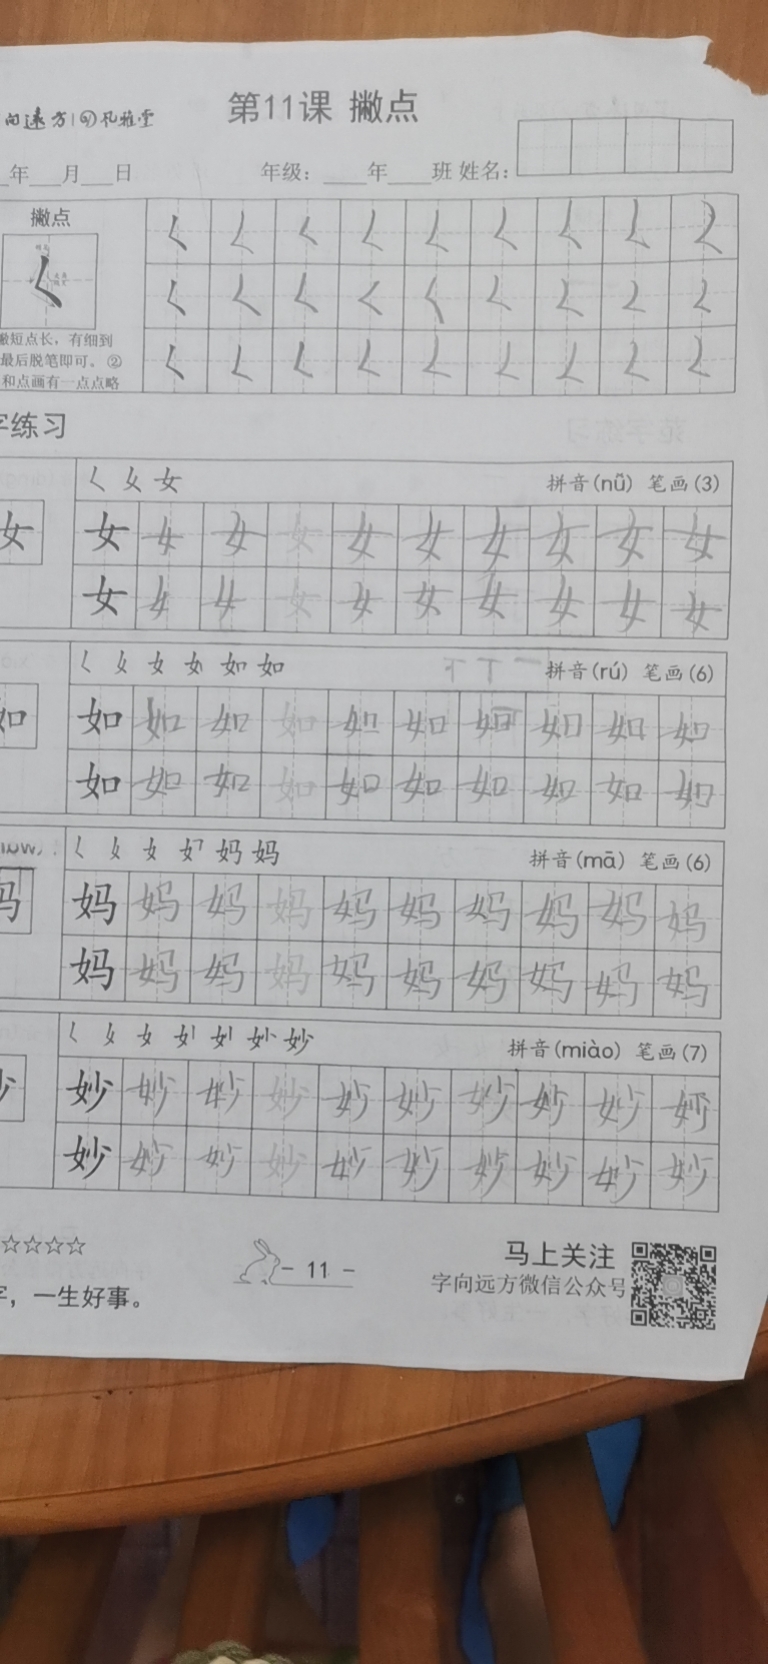 向远方 孔雅堂
第11课 撇点
年___月___日 年级：____年____班 姓名：
撇点
撇短点长，有细到
最后脱笔即可。②
和点画有一点点略
字练习
𡿨 女 拼音(nǚ) 笔画(3)
女 女 女 女 女 女 女 女 女 女 女
女 女 女 女 女 女 女 女 女 女
女 如 如 拼音(rú) 笔画(6)
如 如 如 如 如 如 如 如 如 如 如
如 如 如 如 如 如 如 如 如 如
女 妈 妈 拼音(mā) 笔画(6)
妈 妈 妈 妈 妈 妈 妈 妈 妈 妈 妈
妈 妈 妈 妈 妈 妈 妈 妈 妈 妈
女 妙 拼音(miào) 笔画(7)
妙 妙 妙 妙 妙 妙 妙 妙 妙 妙 妙
妙 妙 妙 妙 妙 妙 妙 妙 妙 妙
☆☆☆☆
- 11 -
马上关注
字，一生好事。
字向远方微信公众号